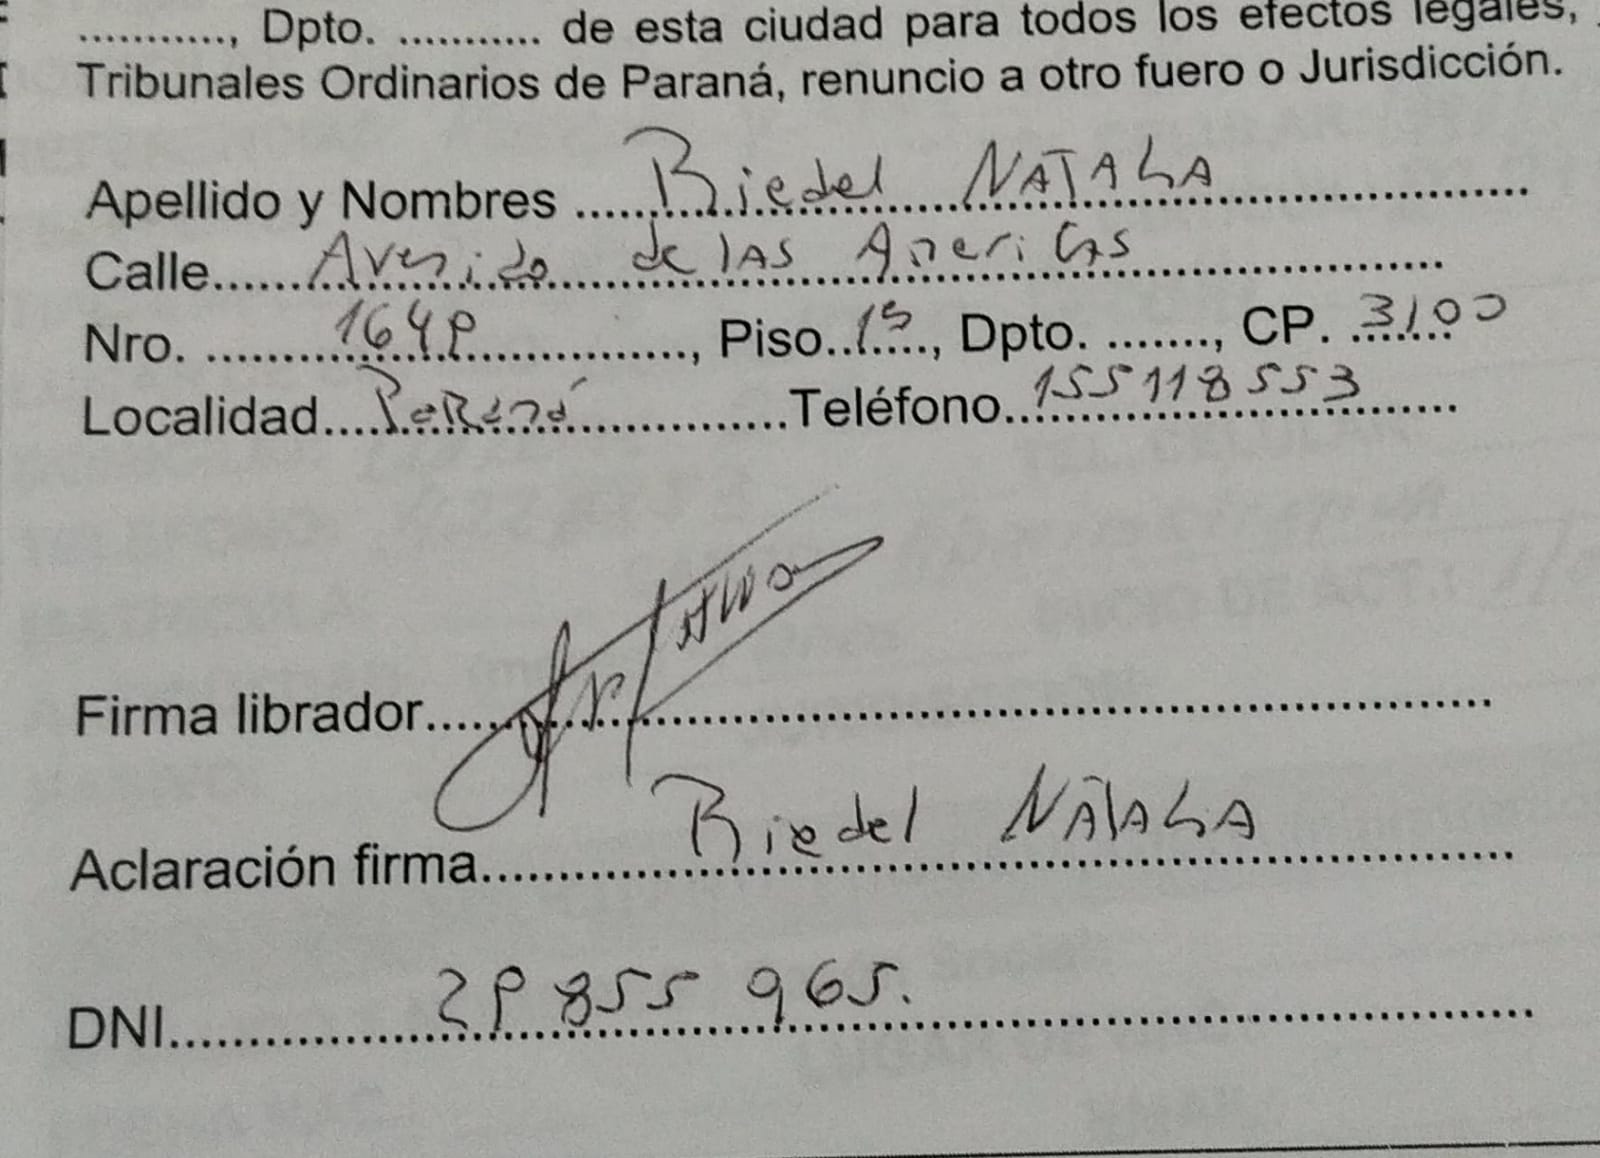 ............, Dpto. ........... de esta ciudad para todos los efectos legales,
Tribunales Ordinarios de Paraná, renuncio a otro fuero o Jurisdicción.
Apellido y Nombres ..... Riedel NATALIA
Calle...... Avenida de las Americas
Nro. ......... 1649 ........, Piso..15...., Dpto. ......., CP. 3100
Localidad.... Paraná ............Teléfono..155118553
Firma librador..........
Aclaración firma.......... Riedel NATALIA
DNI.......... 29 855 965.